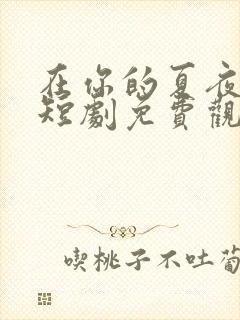 在你的夏夜
短劇免費觀
喫桃子不吐葡